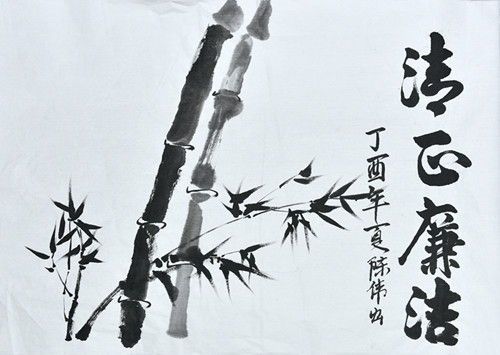 清正廉洁
丁酉年夏陈伟